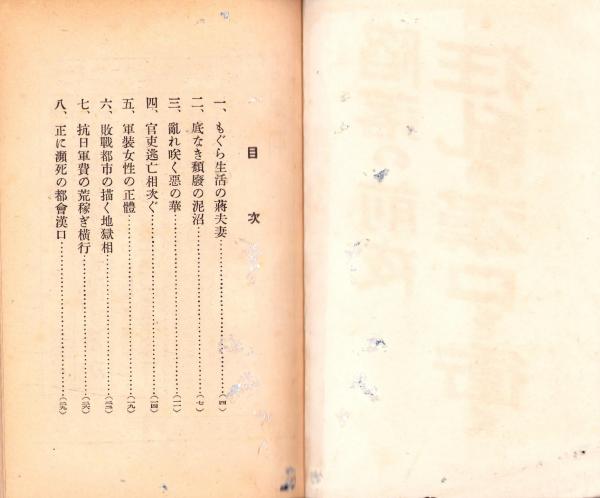 目次
一、もぐら生活の蔣夫妻……（四）
二、底なき頽廢の泥沼……（七）
三、亂れ咲く惡の華……（一一）
四、官吏逃亡相次ぐ……（一四）
五、軍裝女性の正體……（一九）
六、敗戰都市の描く地獄相……
七、抗日軍費の荒稼ぎ橫行……
八、正に瀕死の都會漢口……